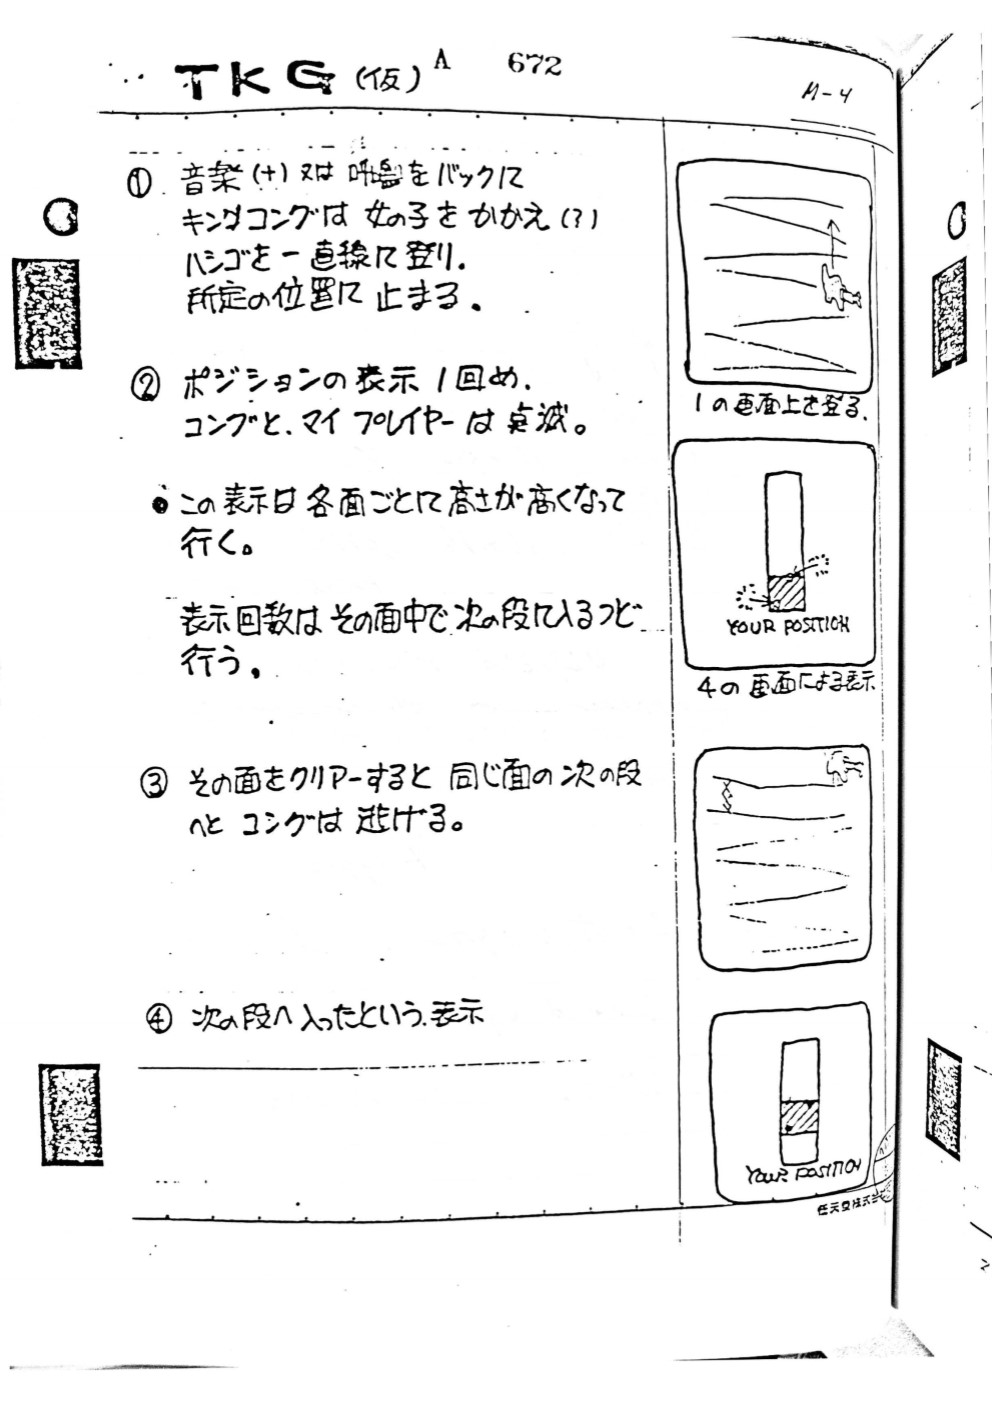 TKG (仮) A 672
M-4
① 音楽(+)又は 呼鳴をバックに
キングコングは 女の子を かかえ(?)
ハシゴを一直線に登り.
所定の位置に 止まる。
② ポジションの表示 1回め.
コングと、マイ プレイヤーは 点滅。
• この表示は 各面ごとに高さが高くなって
行く。
表示回数は その面中で 次の段に入るつど
行う。
③ その面をクリアーすると 同じ面の 次の段
へと コングは 逃げる。
④ 次の段へ入ったという.表示
1の画面上を登る.
YOUR POSITION
4の画面による表示
YOUR POSITION
任天堂株式会